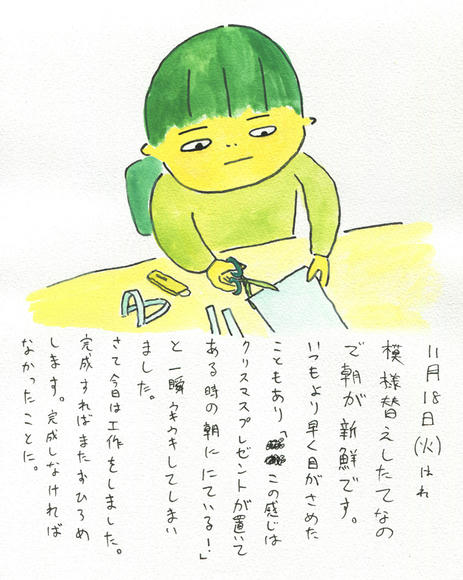 11月18日(火)はれ
模様替えしたてなの
で朝が新鮮です。
いつもより早く目がさめた
こともあり「この感じは
クリスマスプレゼントが置いて
ある時の朝ににている!」
と一瞬ウキウキしてしまい
ました。
さて今日は工作をしました。
完成すればまたおひろめ
します。完成しなければ
なかったことに。